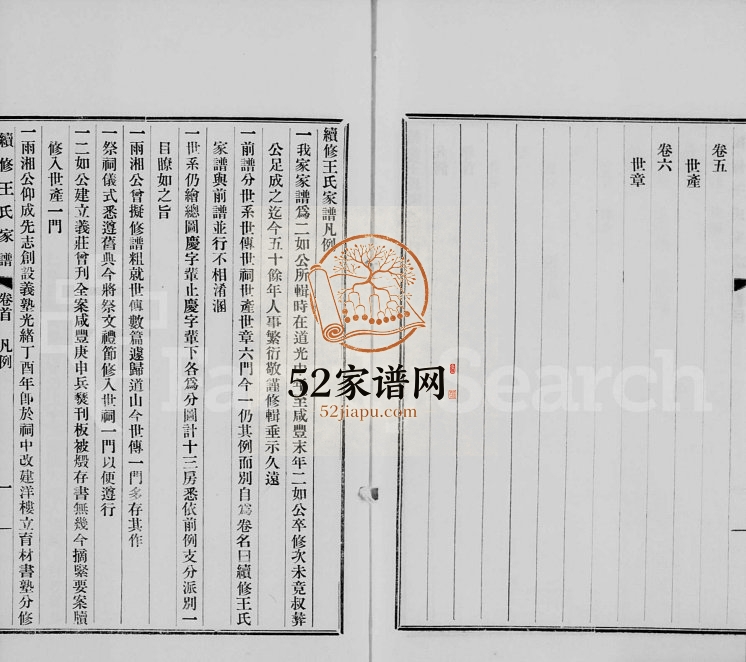 卷五
世產
卷六
世章
續修王氏家譜凡例
一我家家譜爲二如公所輯時在道光中至咸豐末年二如公卒修次未竟叔彝
公足成之迄今五十餘年人事繁衍敬謹修輯垂示久遠
一前譜分世系世傳世祠世產世章六門今一仍其例而別自爲卷名曰續修王氏
家譜與前譜並行不相淆溷
一世系仍繪總圖慶字輩止慶字輩下各爲分圖計十三房悉依前例支分派別一
目瞭如之旨
一雨湘公曾擬修譜粗就世傳數篇遽歸道山今世傳一門多存其作
一祭祠儀式悉遵舊典今將祭文禮節修入世祠一門以便遵行
一二如公建立義莊曾刊全案咸豐庚申兵燹刊板被燬存書無幾今摘緊要案牘
修入世產一門
一雨湘公仰成先志創設義塾光緒丁酉年卽於祠中改建洋樓立育材書塾分修
續修王氏家譜 卷首 凡例 一
52家谱网
52jiapu.com
Search